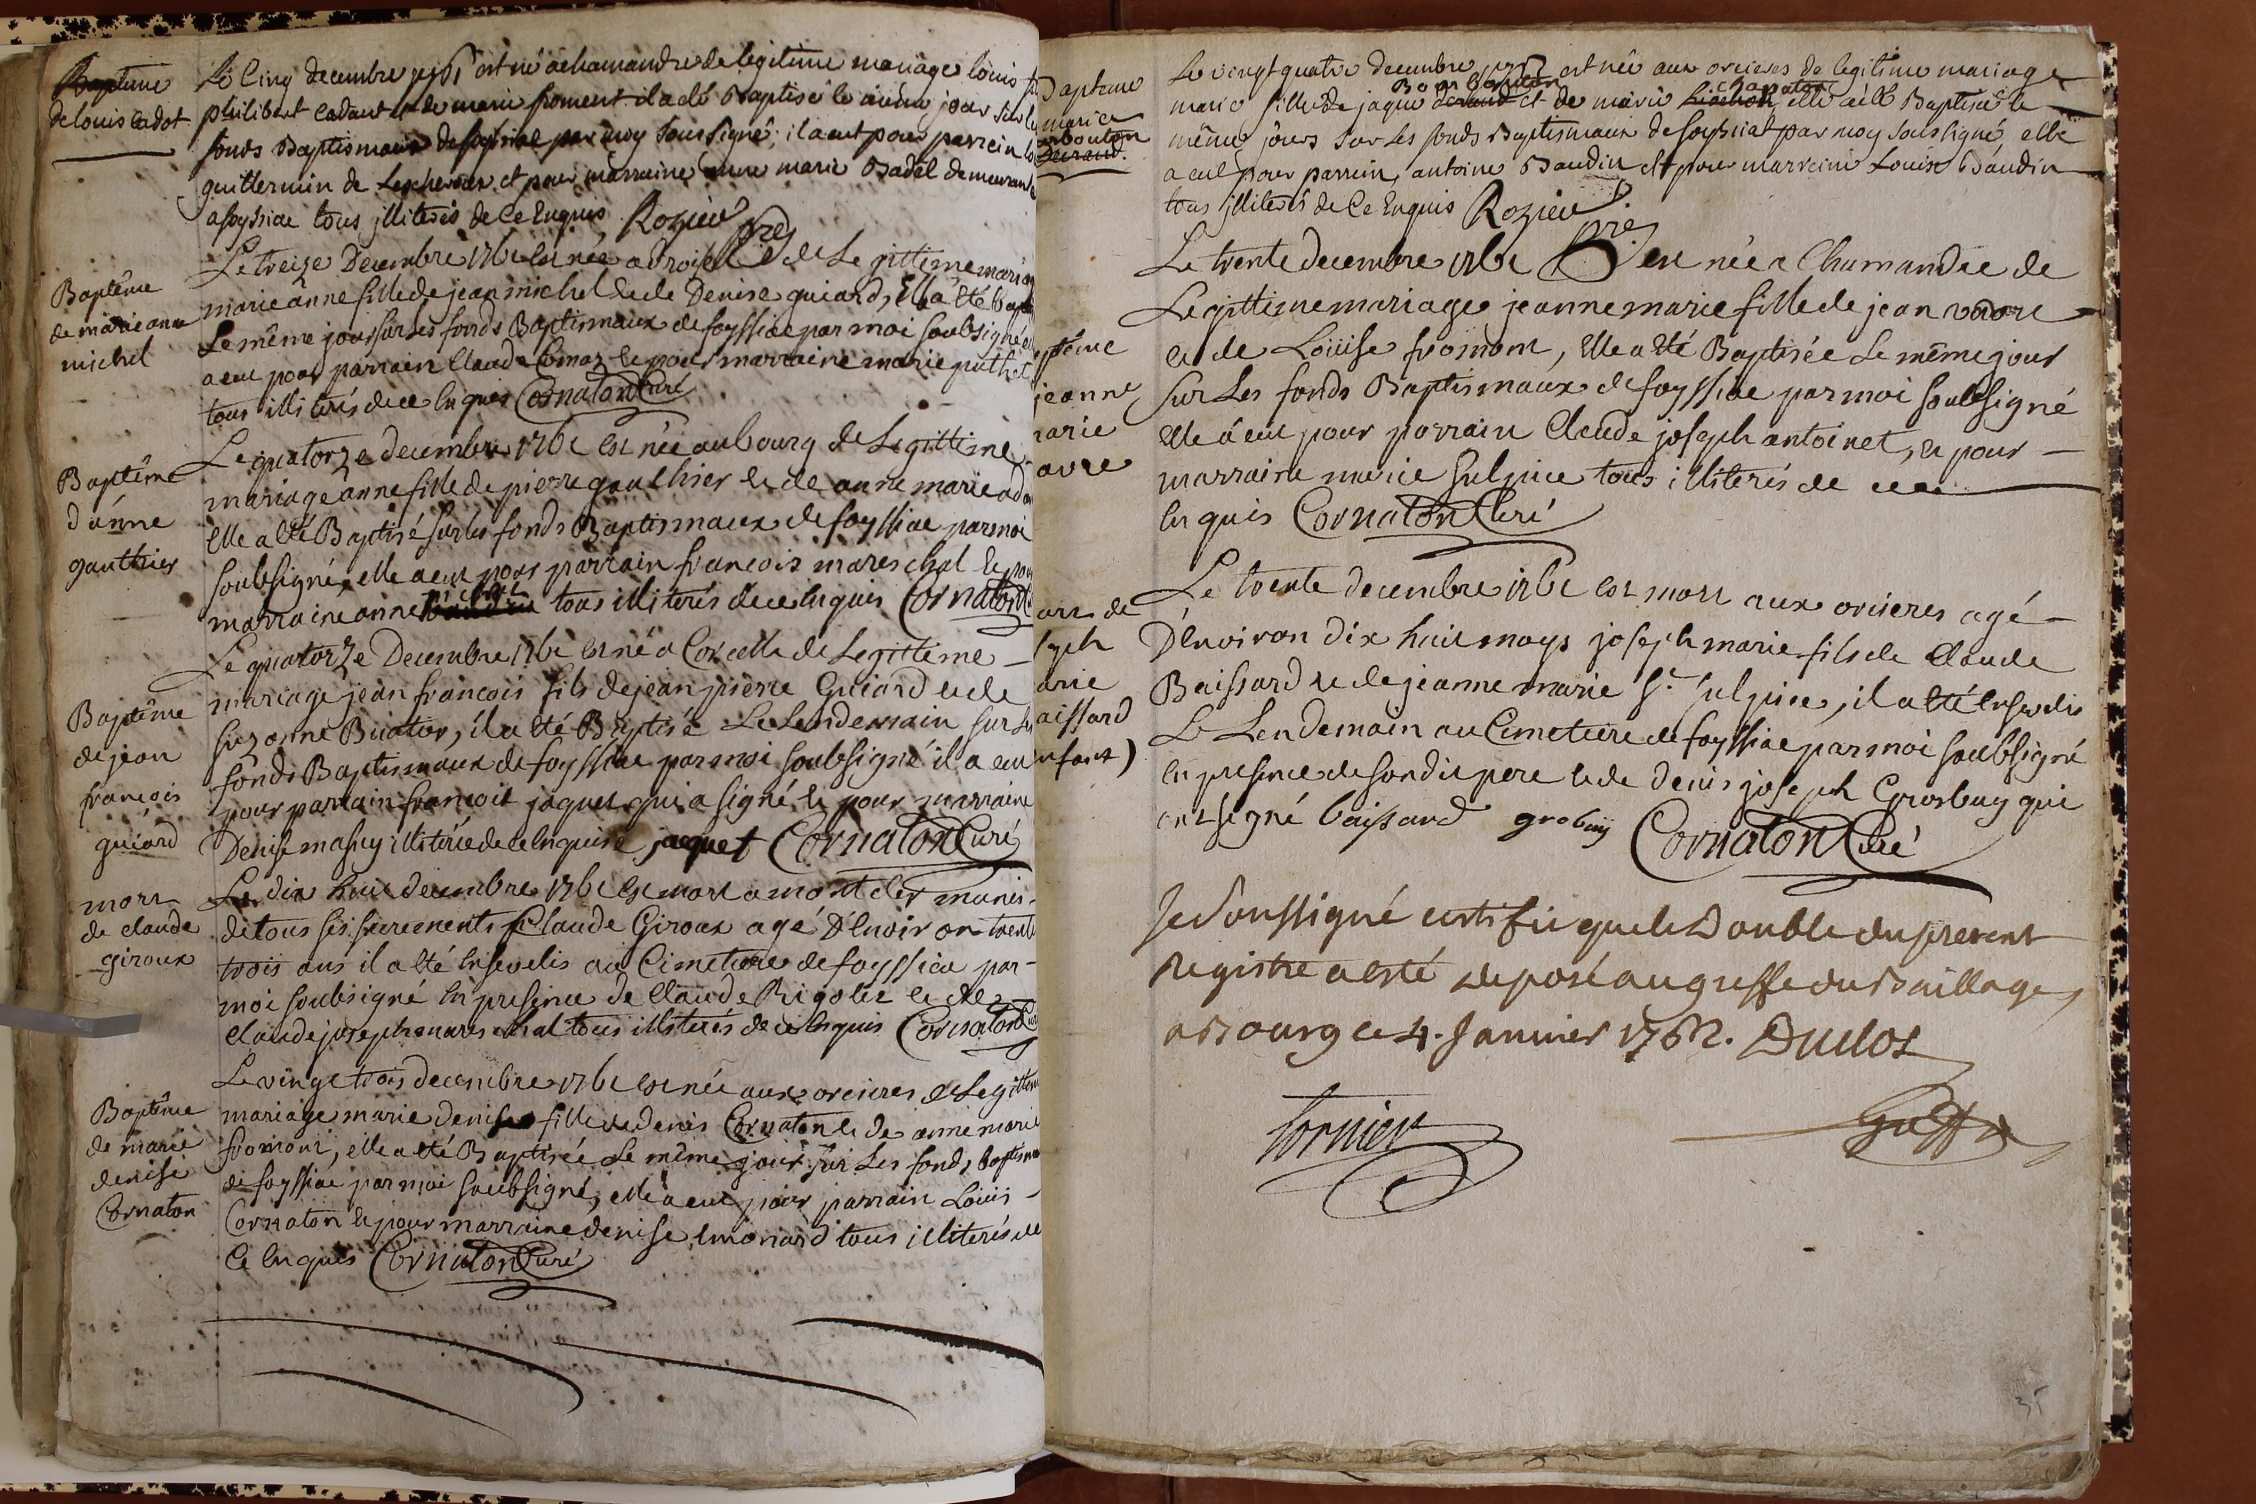 Bapteme
de louis cadot
Le Cinq decembre 1761 est né a chamandre de legitime mariage louis
philibert cadaut et de marie froment il a eté Baptisé le même jour sur les
fonds Baptismaux de foyssiat par moy soussigné, il a eut pour parrein
guillermin de Lescheroux et pour marraine marie Badel demeurante
a foyssiat tous illiterés de Ce Enquis Rozier pre
Baptême
de marie anne
michel
Le treize Decembre 1761 est née a de Legittime mariage
marie anne fille de jean michel et de Denise guiard, Elle a été
Le même jour sur les fonds Baptismaux de foyssiac par moi soubsigné
a eut pour parrain Claude et pour marraine marie puthet
tous illiterés de ce Enquis Cornaton Curé
Baptême
d'anne
gauthier
Le quatorze decembre 1761 est née au bourg de Legittime
mariage anne fille de pierre gauthier et de anne marie
Elle a été Baptisé sur les fonds Baptismaux de foyssiac par moi
soubsigné, elle a eut pour parrain francois mareschal et pour
marraine anne michel tous illiterés de ce Enquis Cornaton
Baptême
de jean
françois
guiard
Le quatorze Decembre 1761 est né a Corcelle de Legittime
mariage jean francois fils de jean pierre Guiard et de
suzanne Buatier, il a été Baptisé Le Lendemain sur Les
fonds Baptismaux de foyssiac par moi soubsigné il a eut
pour parrain francois jaquet qui a signé et pour marraine
Denise masuy illiterée de ce Enquise jaquet Cornaton Curé
mort
de claude
giroux
Le dix huit decembre 1761 est mort a montcler munis
de tous ses sacrements Claude Giroux agé D'Environ trente
trois ans il a été Ensevelis au Cimetiere de foyssiac par
moi soubsigné En presence de Claude Rigolet et de
Claude joseph mareschal tous illiterés de ce Enquis Cornaton
Baptême
de marie
denise
Cornaton
Le vingt trois decembre 1761 est née aux orcieres de Legittime
mariage marie denise fille de denis Cornaton et de anne marie
fromont, elle a été Baptisée Le même jour sur Les fonds baptismaux
de foyssiac par moi soubsigné, elle a eut pour parrain Louis
Cornaton et pour marraine denise Emoriard tous illiterés de
Ce Enquis Cornaton Curé
Bapteme
marie
bonbouton
Deraud.
Le vingt quatre decembre 1761 est née aux orcieres de legitime mariage
Bon Bouton chanaton
marie fille de jaque deraud et de marie elle a été Baptisée le
même jours sur les fonds Baptismaux de foyssiat par moy soussigné, elle
a eut pour parrein, antoine Baudin et pour marreine Louise Baudin
tous illiterés de Ce Enquis Rozier pre
ptême
jeanne
marie
avre
Le trente decembre 1761 est née a Chamandre de
Legittime mariage jeanne marie fille de jean
et de Loüise fromont, Elle a été Baptisée Le même jour
sur Les fonds Baptismaux de foyssiac par moi soubsigné
elle a eut pour parrain Claude joseph antoinet, et pour
marraine marie sulpice tous illiterés de ce
Enquis Cornaton Curé
ort de
seph
arie
aissard
nfant)
Le trente decembre 1761 est mort aux orcieres agé
D'Environ dix huit moys joseph marie fils de Claude
Baissard et de jeanne marie St. sulpice, il a été Ensevelis
Le Lendemain au Cimetiere de foyssiac par moi soubsigné
En presence de son dit pere et de denis joseph Grosbuy qui
ont signé baissard grobuy Cornaton Curé
Je soussigné certifie que le Double du present
Registre a esté deposé au greffe du Baillage
a Bourg ce 4. Janvier 1762. Duclos
tornier
Greff.
35